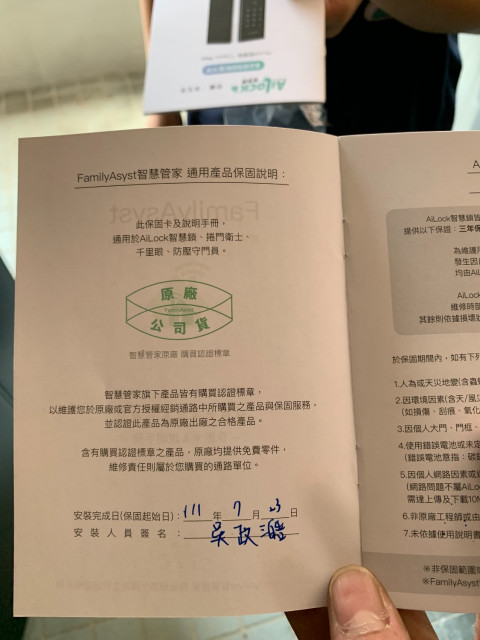 AiLock
FamilyAsyst智慧管家 通用產品保固說明：
此保固卡及說明手冊，
適用於AiLock智慧鎖、捲門衛士、
千里眼、防壓守門員。
原廠
FamilyAsyst
公司貨
智慧管家原廠 購買認證標章
智慧管家旗下產品皆有購買認證標章，
以維護您於原廠或官方授權經銷通路中所購買之產品與保固服務，
並認證此產品為原廠出廠之合格產品。
含有購買認證標章之產品，原廠均提供免費零件，
維修責任則屬於您購買的通路單位。
安裝完成日(保固起始日)：111 年 7 月 23 日
安裝人員簽名：吳政
AiLock智慧鎖皆
提供以下保證：三年保
為維護
發生因
均由Ai
AiLo
維修時部
其餘則依據損壞
於保固期間內，如有下列
1.人為或天災地變(含蟲
2.因環境因素(含天/風災
(如損傷、刮痕、氧化
3.因個人大門、門框、
4.使用錯誤電池或未定
(錯誤電池意指：碳鋅
5.因個人網路因素或
(網路問題不屬AiLo
需達上傳及下載10M
6.非原廠工程師或由
7.未依據使用說明書
※非保固範圍
※FamilyAsyst